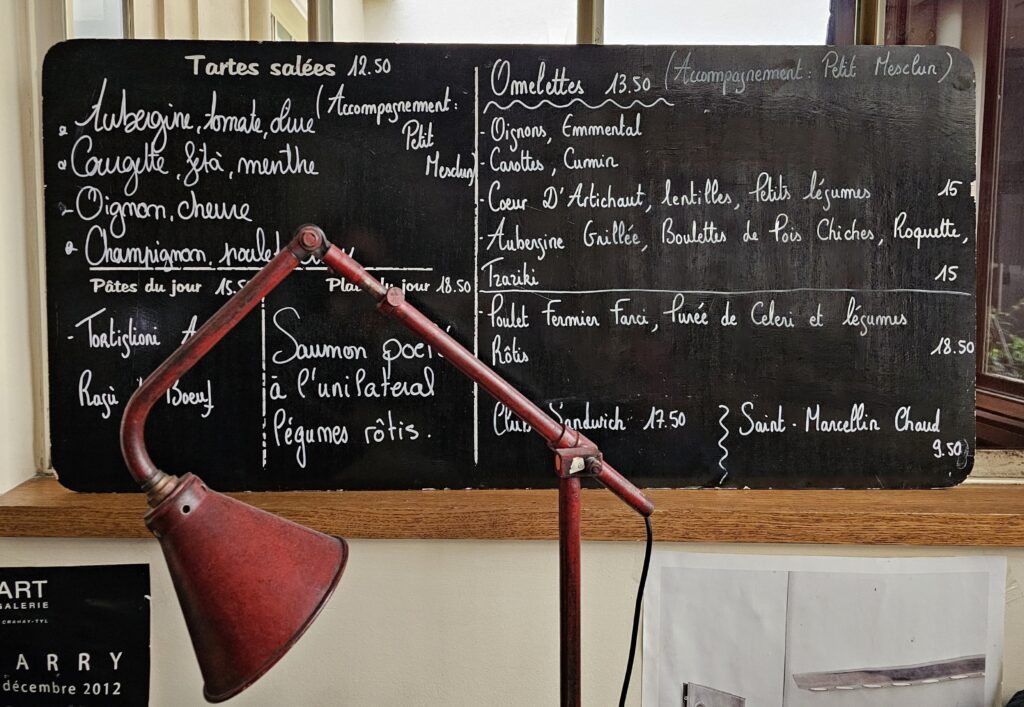 Tartes salées 12.50
(Accompagnement:
Petit
Mesclun)
- Aubergine, tomate, olive
- Courgette, fêta, menthe
- Oignon, chevre
- Champignon, poulet
Pâtes du jour 15.50
- Tortiglioni
Ragù Boeuf
Plat du jour 18.50
Saumon
à l'unilateral
légumes rôtis.
Omelettes 13.50 (Accompagnement: Petit Mesclun)
- Oignons, Emmental
- Carottes, Cumin
- Coeur D'Artichaut, lentilles, Petits légumes 15
- Aubergine Grillée, Boulettes de Pois Chiches, Roquette,
Tzaziki 15
- Poulet Fermier Farci, Purée de Celeri et légumes
Rôtis 18.50
Club Sandwich 17.50
Saint-Marcellin Chaud
9.50
ART
GALERIE
CRAHAY-TYL
ARRY
décembre 2012